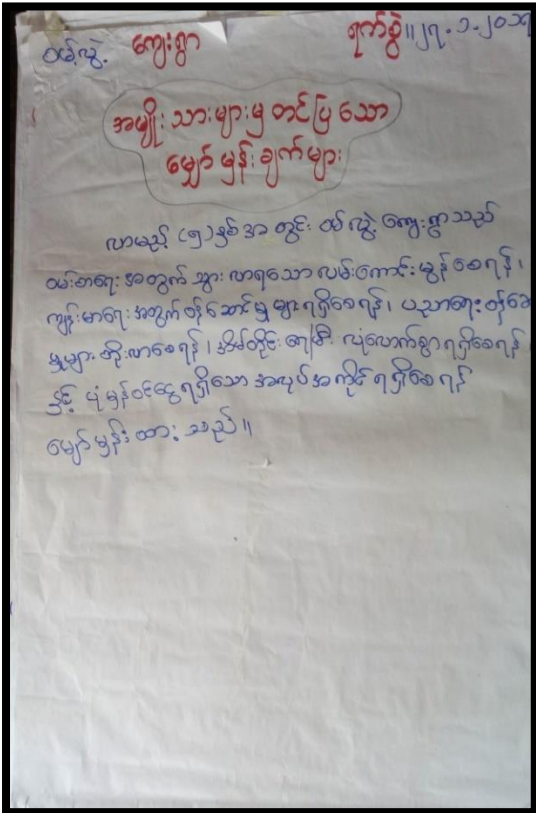 ဝမ်လွဲ့ ကျေးရွာ ရက်စွဲ။၂၇.၁.၂၀၁၇
အမျိုးသားများမှ တင်ပြသော
မျှော်မှန်းချက်များ
လာမည့် (၅)နှစ် အတွင်း ဝမ်လွဲ့ ကျေးရွာသည်
ဝမ်းစာရေး အတွက် သွားလာရသော လမ်းကောင်းမွန်စေရန်၊
ကျန်းမာရေး အတွက် ဝန်ဆောင်မှုများ ရရှိစေရန်၊ ပညာရေး ဝန်ဆောင်
မှုများ တိုးလာစေရန်၊ အိမ်တိုင်း ရေ/မီး လုံလောက်စွာ ရရှိစေရန်
နှင့် ပုံမှန်ဝင်ငွေရရှိသော အလုပ်အကိုင် ရရှိစေရန်
မျှော်မှန်းထားသည်။